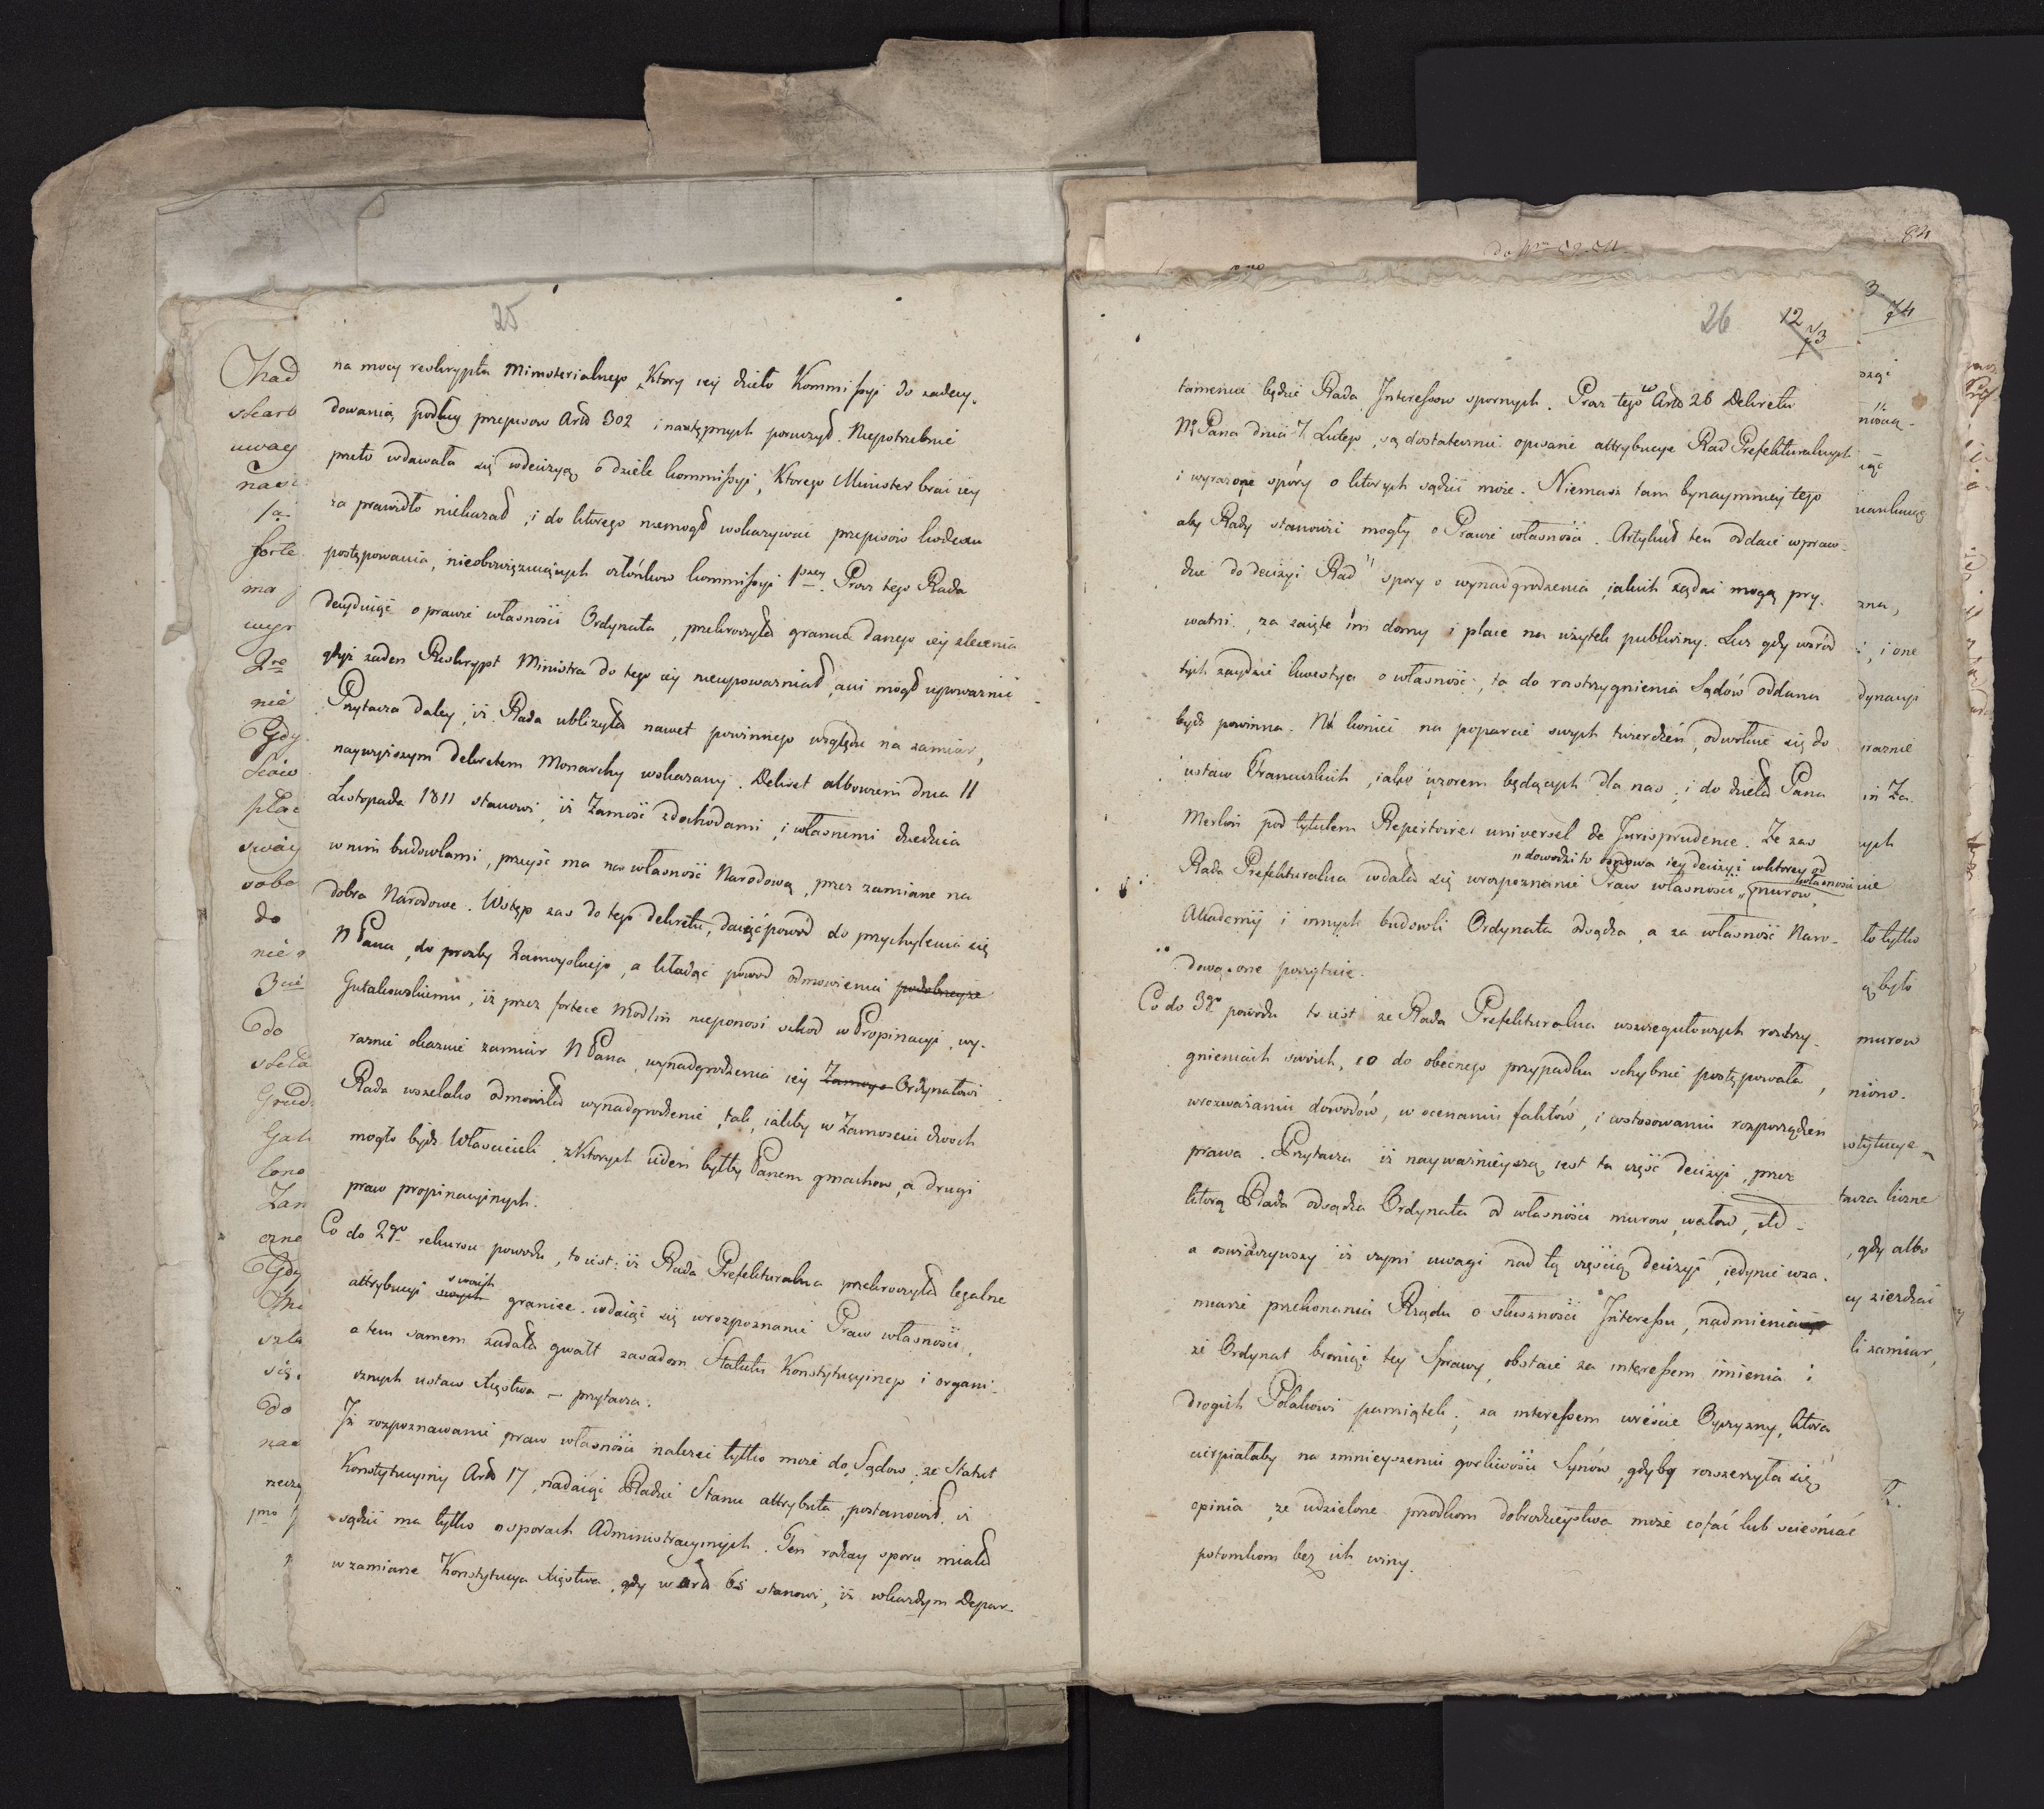 25
na mocy reskryptu Ministerialnego, Ktory iey dzieło Kommissyi do zadecy-
dowania podług przepisow Artł 302 i następnych poruczył. Niepotrzebnie
przeto wdawała się wdecizyą o dziele kommissyi, Ktorego Minister brać iey
za prawidło niekazał, i do ktorego niemogł wskazywać przepisów kodexu
postępowania, nieobowięzuiących członkow kommissyi 1szey. Prócz tego Rada
decyduiąc o prawie własności Ordynata, przekroczyła granice danego iey zlecenia
gdyż żaden Reskrypt Ministra do tego iey nieupoważniał, ani mogł upoważnić.
Przytacza daley, iż Rada ubliżyła nawet powinnego względu na zamiar,
naywyższym dekretem Monarchy wskazany. Dekret albowiem dnia 11
Listopada 1811 stanowi, iż Zamość zdochodami, i własnemi dziedzica
wnim budowlami, przeyść ma na własność Narodową, przez zamianę na
dobra Narodowe. Wstęp zas do tego dekretu, daiąc powod do przychylenia się
N Pana, do prozby Zamoyskiego, a kładąc powod odmowienia podobneyże
Gutakowskiemu, iż przez fortece Modlin nieponosi szkod w Propinacyi, wy-
raznie okazuie zamiar N Pana, wynadgrodzenia iey Zamoys Ordynatowi.
Rada wszelako odmowiła wynadgrodzenie, tak, iakby w Zamosciu dwoch
mogło bydź Właścicieli, zKtorych ieden byłby Panem gmachow, a drugi
praw propinacyinych.
Co do 2go rekursu powodu, to iest: iż Rada Prefekturalna przekroczyła legalne
attrybucyi swych swoich granice, wdaiąc się wrozpoznanie Praw własności,
a tem samem zadała gwałt zasadom Statutu Konstytucyinego i organi-
cznych ustaw Xięstwa – przytacza:
Iż rozpoznawanie praw własności należeć tylko może do Sądow, że Statut
Konstytucyiny Artł 17, nadaiąc Radzie Stanu attrybuta, postanowił, iż
sądzić ma tylko o sporach Administracyinych. Ten rodzay sporu miała
w zamiarze Konstytucya Xięstwa, gdy w artł 65 stanowi, iż wkażdym Depar-
26
12
73
tamencie będzie Rada Interessow spornych. Prócz tego w Artł 26 Dekretu
N Pana dnia 7 Lutego, są dostatecznie opisane attrybucye Rad Prefekturalnych
i wyrażone spóry o ktorych sądzić może. Niemasz tam bynaymniey tego
aby Rady stanowić mogły o Prawie własności. Artykuł ten oddaie wpraw-
dzie do decizyi Rad " spory o wynadgrodzenia, iakich żądać mogą pry-
watni, za zaięte im domy i place na użytek publiczny. Lecz gdy wśród
tych zaydzie kwestya o własność, ta do rozstrzygnienia Sądów oddana
bydź powinna. Na koniec na poparcie swych twierdzeń, odwołuie się do
ustaw Francuzkich, iako wzorem będących dla nas, i do dzieła Pana
Merlin pod tytułem Repertoire universel de Jurisprudence. Że zas
Rada Prefekturalna wdała się wrozpoznanie Praw własności, "dowodzi to osnowa iey decizyi wktorey od własności murow,
Akademij i innych budowli Ordynata odsądza, a za własność Naro-
dową one poczytuie.
Co do 3go powodu to iest że Rada Prefekturalna wszczegułowych rostrzy-
gnieniach swoich, co do obecnego przypadku uchybnie postępowała,
wrozważaniu dowodów, w ocenianiu faktów, i wstosowaniu rozporządzeń
prawa. Przytacza iż nayważnieyszą iest ta część decizyi, przez
ktorą Rada odsądza Ordynata od własności murow, wałow, itd –
a oswiadczywszy iż czyni uwagi nad tą częścią decizyi, iedynie wza-
miarze przekonania Rządu o słuszności Interessu, nadmienia
że Ordynat broniąc tey Sprawy, obstaie za interessem imienia i
drogich Polakowi pamiątek, za interessem wreście Oyczyzny, ktora
cierpiałaby na zmnieyszeniu gorliwości Synów, gdyby rozszerzyła się
opinia, że udzielone przodkom dobrodzieystwa może cofać lub scieśniać
potomkom bez ich winy.